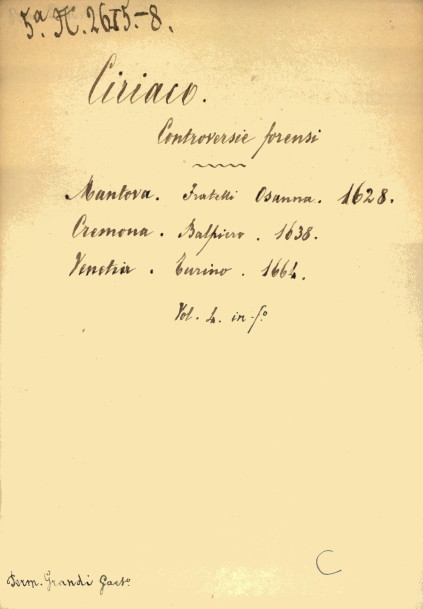 5.ª H. 2615.-8.
Ciriaco.
Controversie forensi
Mantova. Fratelli Osanna. 1628.
Cremona. Balpiero. 1638.
Venetia. Turino. 1664.
Vol. 4. in-fº
Perm. Grandi Gaetº
C